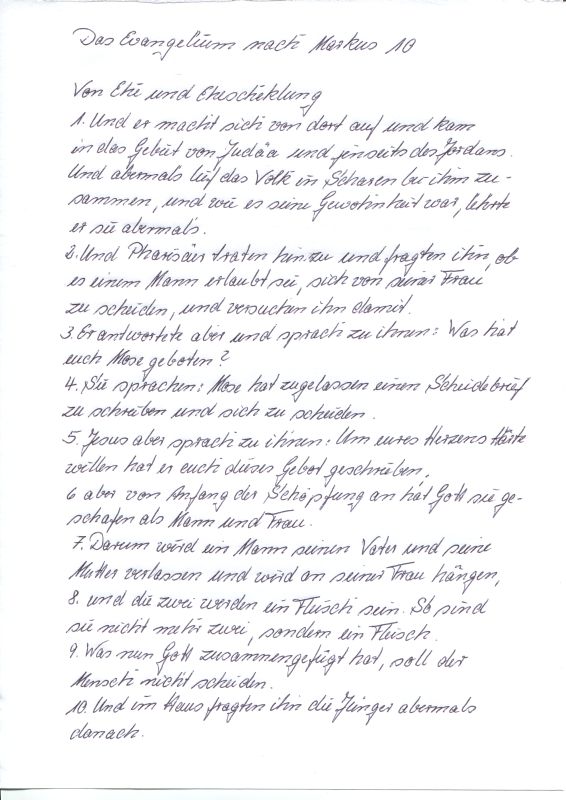 Das Evangelium nach Markus 10
Von Ehe und Ehescheidung
1. Und er macht sich von dort auf und kam
in das Gebiet von Judäa und jenseits des Jordans.
Und abermals lief das Volk in Scharen bei ihm zu-
sammen, und wie es seine Gewohnheit war, lehrte
er sie abermals.
2. Und Pharisäer traten hinzu und fragten ihn, ob
es einem Mann erlaubt sei, sich von seiner Frau
zu scheiden, und versuchen ihn damit.
3. Er antwortete aber und sprach zu ihnen: Was hat
euch Mose geboten?
4. Sie sprachen: Mose hat zugelassen einen Scheidebrief
zu schreiben und sich zu scheiden.
5. Jesus aber sprach zu ihnen: Um eures Herzens Härte
willen hat er euch dieses Gebot geschrieben,
6 aber von Anfang der Schöpfung an hat Gott sie ge-
schafen als Mann und Frau.
7. Darum wird ein Mann seinen Vater und seine
Mutter verlassen und wird an seiner Frau hängen,
8. und die zwei werden ein Fleisch sein. So sind
sie nicht mehr zwei, sondern ein Fleisch.
9. Was nun Gott zusammengefügt hat, soll der
Mensch nicht scheiden.
10. Und im Haus fragten ihn die Jünger abermals
danach.